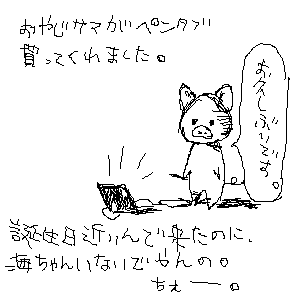 おやじサマがペンタブ
買ってくれました。
お久しぶりです。
誕生日近いんで来たのに、
海ちゃんいないでやんの。
ちぇー。